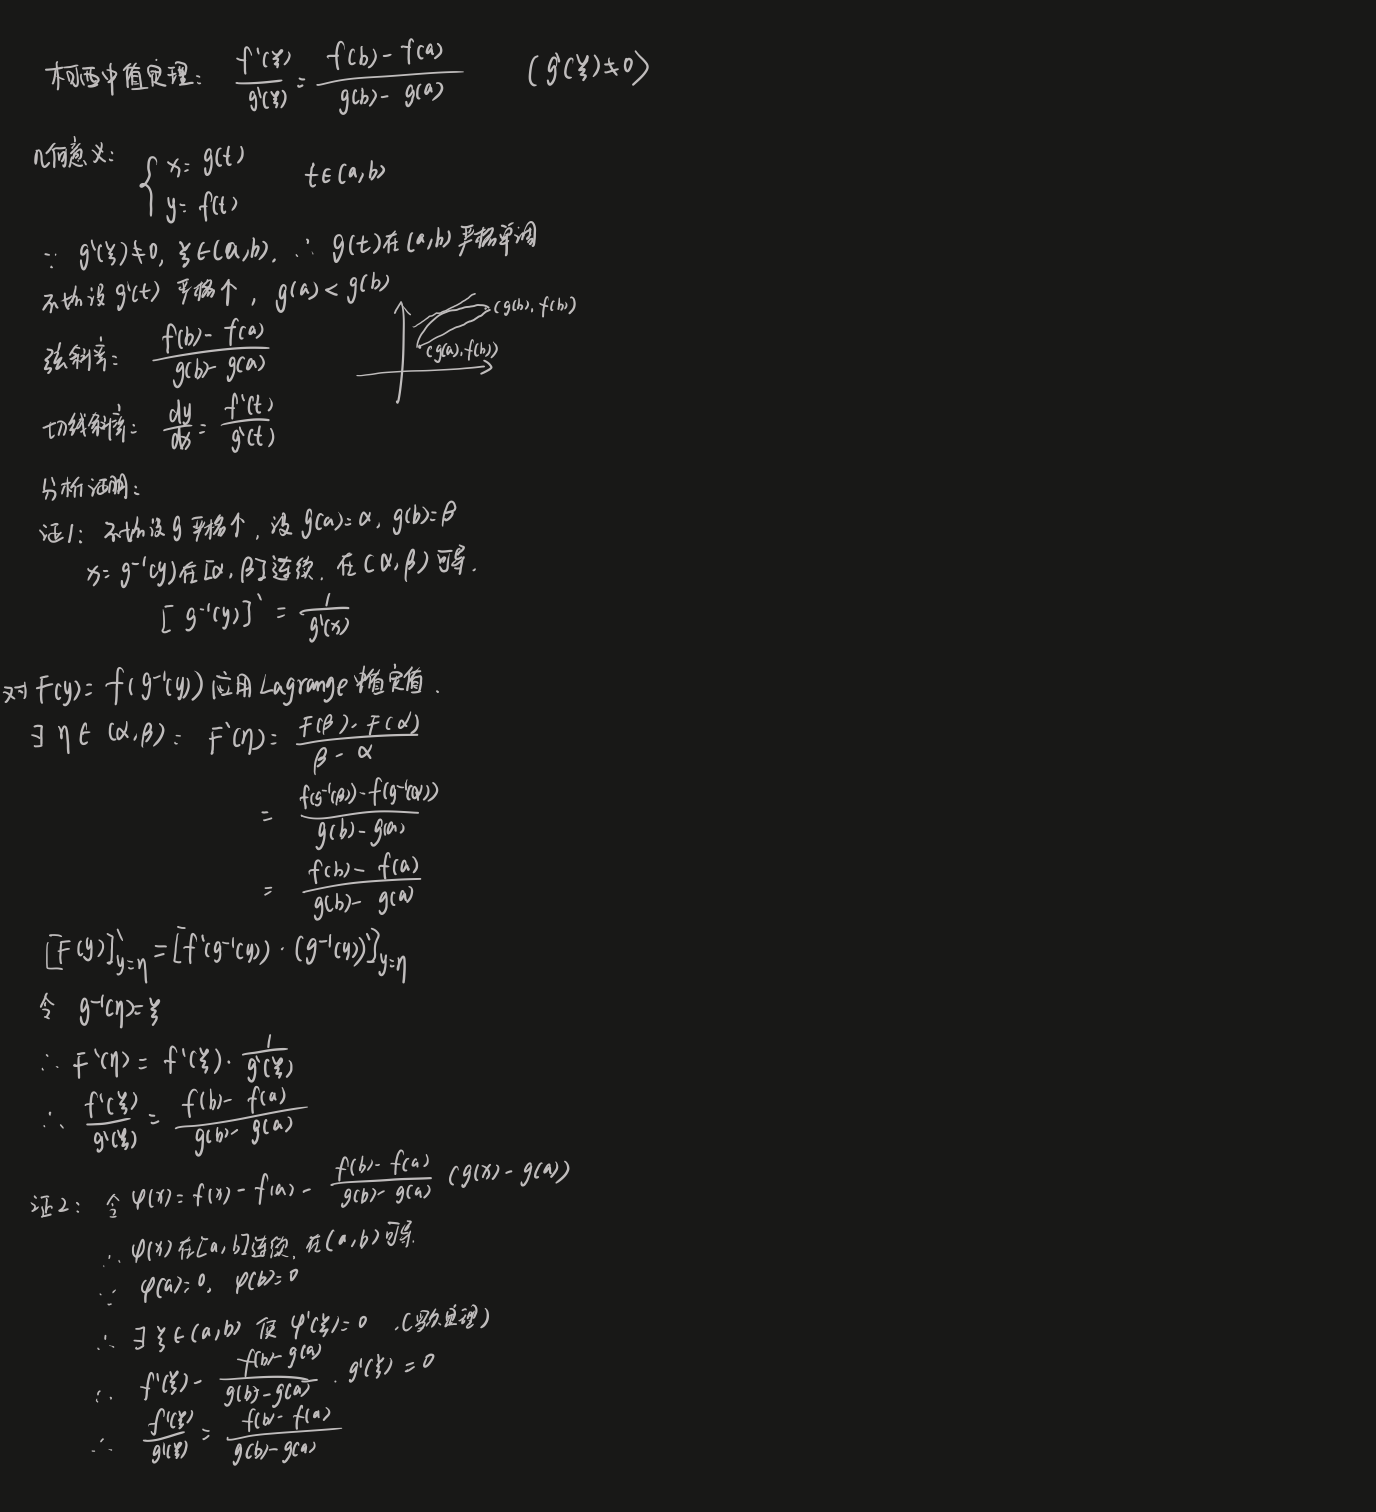 柯西中值定理: f'(ξ)/g'(ξ) = (f(b) - f(a))/(g(b) - g(a)) (g'(ξ)≠0)
几何意义: { x = g(t) y = f(t) t∈(a,b)
∵ g'(ξ)≠0, ξ∈(a,b), ∴ g(t)在(a,b)严格单调
不妨设g'(t) 严格↑, g(a) < g(b)
(g(b), f(b))
(g(a), f(b))
弦斜率: (f(b) - f(a))/(g(b) - g(a))
切线斜率: dy/dx = f'(t)/g'(t)
分析证明:
证1: 不妨设g严格↑, 设g(a)=α, g(b)=β
x = g⁻¹(y)在[α,β]连续, 在(α,β)可导.
[g⁻¹(y)]' = 1/g'(x)
对F(y) = f(g⁻¹(y))应用Lagrange中值定值.
∃ η∈(α,β): F'(η) = (F(β) - F(α))/(β - α)
= (f(g⁻¹(β)) - f(g⁻¹(α)))/(g(b) - g(a))
= (f(b) - f(a))/(g(b) - g(a))
[F(y)]'_{y=η} = [f'(g⁻¹(y)) · (g⁻¹(y))']_{y=η}
令 g⁻¹(η)=ξ
∴ F'(η) = f'(ξ) · 1/g'(ξ)
∴ f'(ξ)/g'(ξ) = (f(b) - f(a))/(g(b) - g(a))
证2: 令 φ(x) = f(x) - f(a) - (f(b) - f(a))/(g(b) - g(a)) (g(x) - g(a))
∴ φ(x)在[a,b]连续, 在(a,b)可导.
∵ φ(a)=0, φ(b)=0
∴ ∃ ξ∈(a,b) 使 φ'(ξ)=0 .(罗尔定理)
∴ f'(ξ) - (f(b) - g(a))/(g(b) - g(a)) · g'(ξ) = 0
∴ f'(ξ)/g'(ξ) = (f(b) - f(a))/(g(b) - g(a))